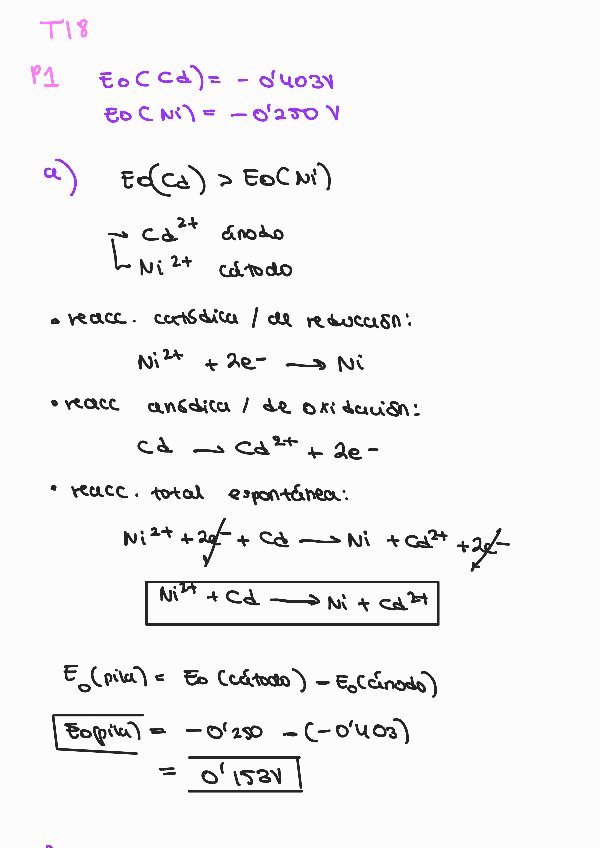 T18
P1 E0(Cd) = -0'403V
E0(Ni) = -0'250 V
a) E0(Cd) > E0(Ni)
→ Cd²⁺ ánodo
Ni²⁺ cátodo
• reacc. catódica / de reducción:
Ni²⁺ + 2e- → Ni
• reacc anódica / de oxidación:
Cd → Cd²⁺ + 2e-
• reacc. total espontánea:
Ni²⁺ + 2e- + Cd → Ni + Cd²⁺ + 2e-
Ni²⁺ + Cd → Ni + Cd²⁺
E₀(pila) = E0 (cátodo) - E₀(ánodo)
E0(pila) = -0'250 - (-0'403)
= 0'153V